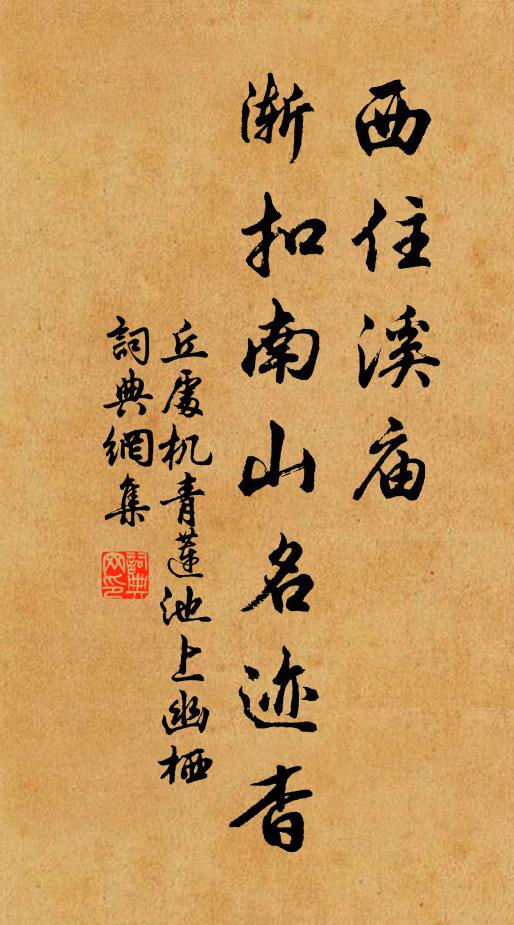 西住溪庙
渐扣南山名迹杳
丘處机青蓮池上幽栖
詞典網集
詞典网印